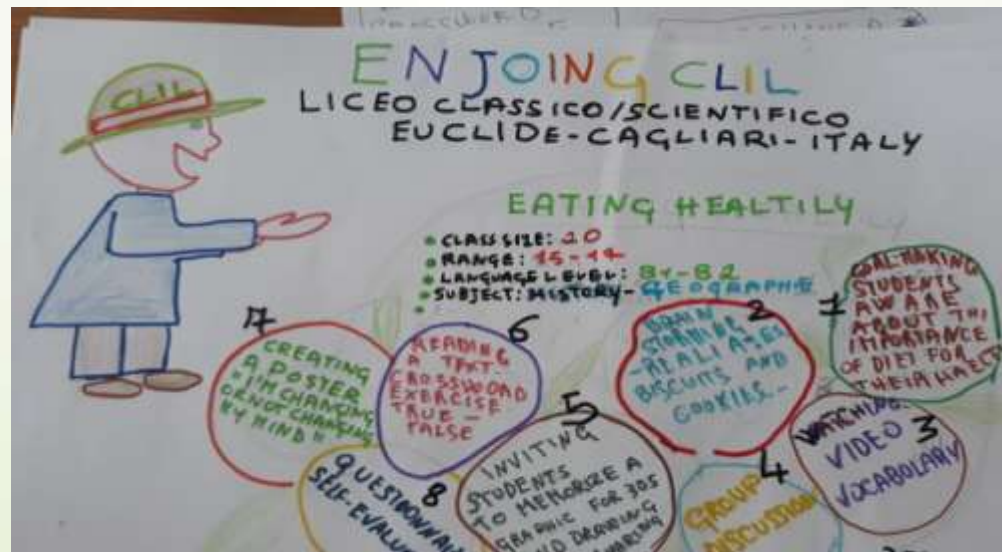 CLIL
ENJOING CLIL
LICEO CLASSICO/SCIENTIFICO
EUCLIDE-CAGLIARI-ITALY
EATING HEALTILY
• CLASS SIZE: 20
• RANGE:
• LANGUAGE LEVEL: B1-B2
• SUBJECT: HISTORY-GEOGRAPHIE
1
GOAL-MAKING
STUDENTS
AWARE
ABOUT THE
IMPORTANCE
OF DIET FOR
THEIR
2
BRAIN
STORMING
BISCUITS AND
COOKIES-
3
WATCHING
VIDEO
VOCABOLARY
4
GROUP
DISCUSSION
5
INVITING
STUDENTS
TO MEMORIZE A
GRAPHIC FOR 30S
AND DRAWING
6
READING
A TEXT-
CROSSWORD
EXERCISE
TRUE-
FALSE
7
CREATING
A POSTER
"I'M CHANGING
OR NOT CHANGING
MY MIND"
8